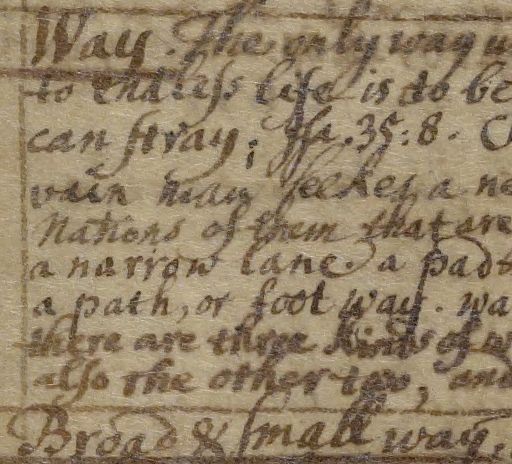 Way. The only way u
to endless life is to be
can stray; Isa. 35:8. C
vain man seekes a ne
Nations of them that are
a narrow lane. a padt
a path, or foot way. wa
there are three kinds of w
also the other two, and
Broad & small way,